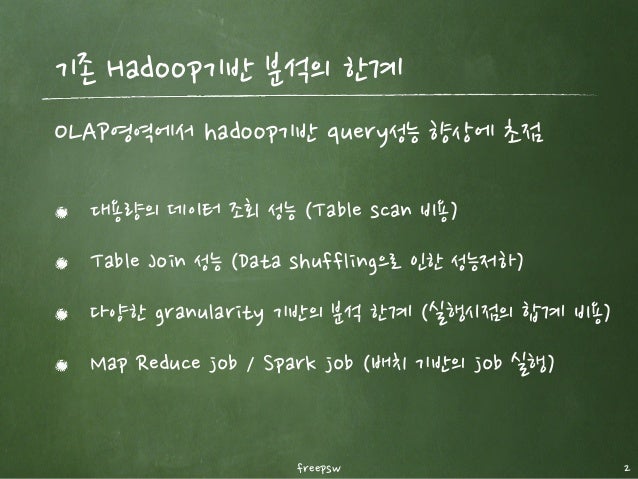 기존 Hadoop기반 분석의 한계
OLAP영역에서 hadoop기반 query성능 향상에 초점
대용량의 데이터 조회 성능 (Table scan 비용)
Table Join 성능 (Data shuffling으로 인한 성능저하)
다양한 granularity 기반의 분석 한계 (실행시점의 합계 비용)
Map Reduce job / Spark job (배치 기반의 job 실행)
freepsw
2